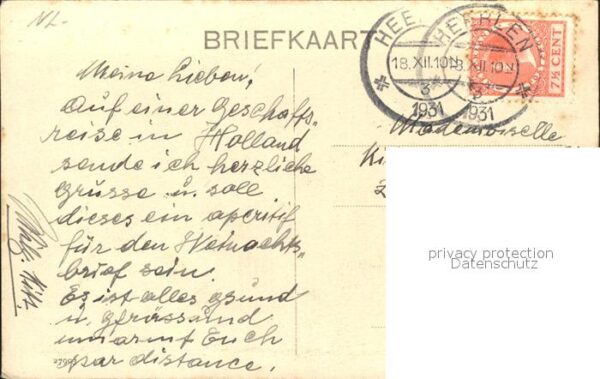 NL-
BRIEFKAART
HEERLEN
18.XII.10N
3
1931
HEERLEN
18.XII.10N
3
1931
7½ CENT
Meine Lieben!
Auf einer Geschäfts-
reise in Holland
sende ich herzliche
Grüsse u. soll
dieses ein aperitif
für den Weinachts-
brief sein.
Es ist alles gsund
u. grüsst und
umarmt Euch
par distance.
Mademoiselle
privacy protection
Datenschutz